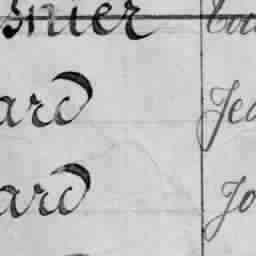 snier
ard Jea
ard Jo